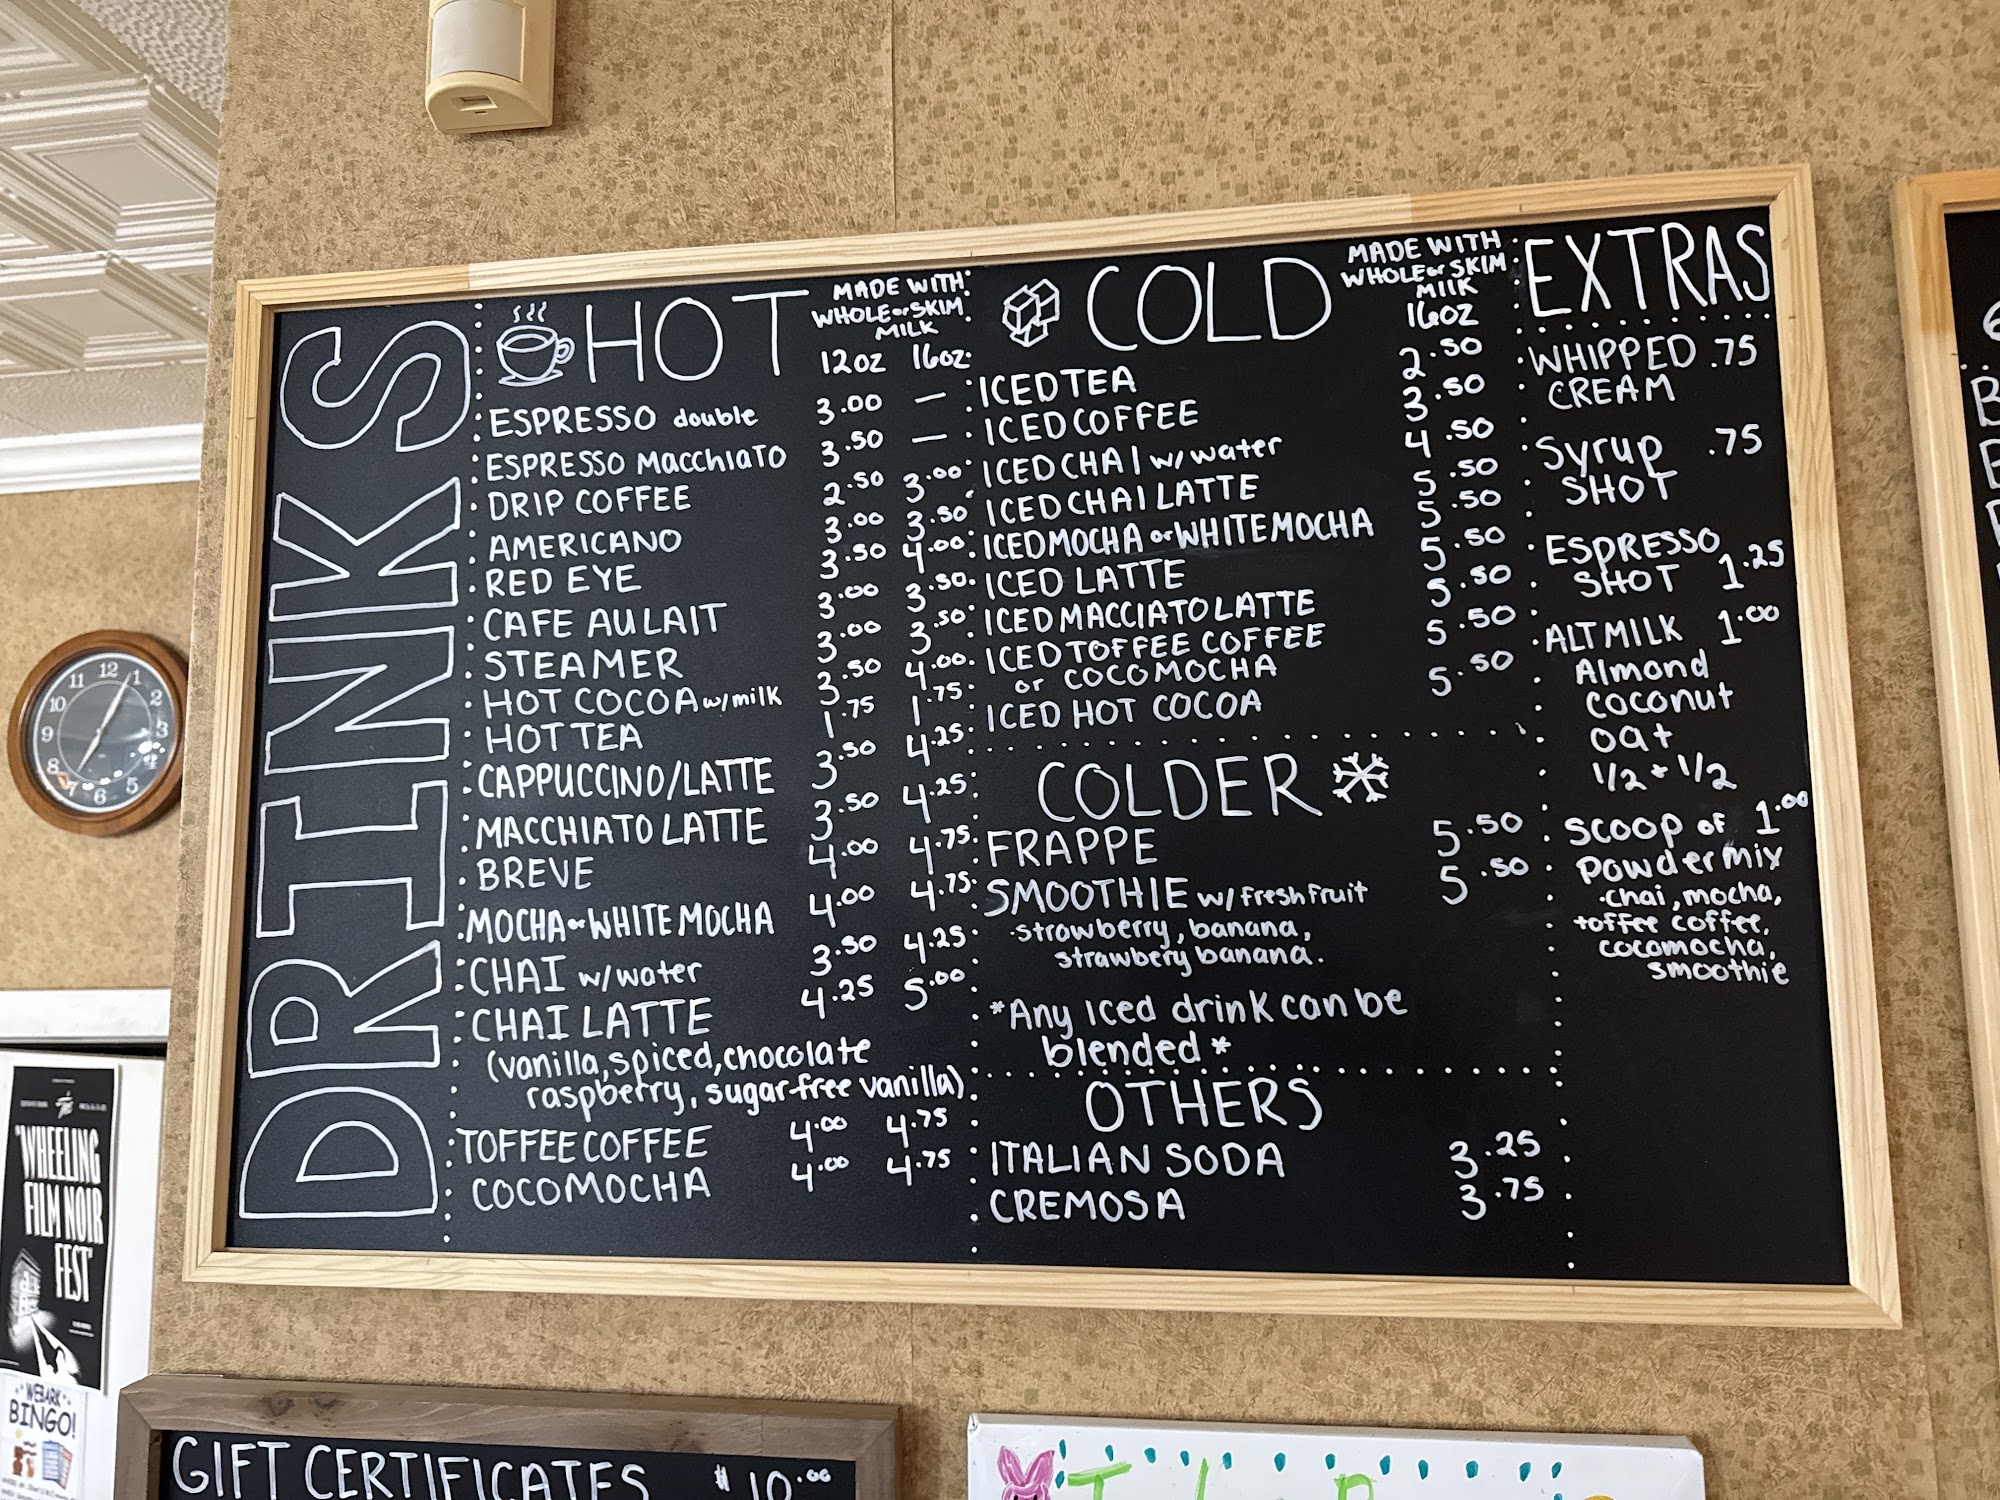 DRINKS
HOT
MADE WITH
WHOLE or SKIM
MILK
12oz 16oz
ESPRESSO double 3.00 —
ESPRESSO MacchiaTO 3.50 —
DRIP COFFEE 2.50 3.00
AMERICANO 3.00 3.50
RED EYE 3.50 4.00
CAFE AU LAIT 3.00 3.50
STEAMER 3.00 3.50
HOT COCOA w/milk 3.50 4.00
HOT TEA 1.75 1.75
CAPPUCCINO/LATTE 3.50 4.25
MACCHIATO LATTE 3.50 4.25
BREVE 4.00 4.75
MOCHA or WHITE MOCHA 4.00 4.75
CHAI w/water 3.50 4.25
CHAI LATTE 4.25 5.00
(vanilla, spiced, chocolate
raspberry, sugar free vanilla)
TOFFEE COFFEE 4.00 4.75
COCOMOCHA 4.00 4.75
COLD
MADE WITH
WHOLE or SKIM
MILK
16oz
ICED TEA 2.50
ICED COFFEE 3.50
ICED CHAI w/ water 4.50
ICED CHAI LATTE 5.50
ICED MOCHA or WHITE MOCHA 5.50
ICED LATTE 5.50
ICED MACCIATO LATTE 5.50
ICED TOFFEE COFFEE 5.50
or COCOMOCHA
ICED HOT COCOA 5.50
COLDER
FRAPPE 5.50
SMOOTHIE w/ fresh fruit 5.50
·strawberry, banana,
strawbery banana.
*Any iced drink can be
blended*
OTHERS
ITALIAN SODA 3.25
CREMOSA 3.75
EXTRAS
WHIPPED .75
CREAM
Syrup .75
SHOT
ESPRESSO
SHOT 1.25
ALT MILK 1.00
Almond
Coconut
oat
1/2 + 1/2
SCOOP OF 1.00
Powder mix
·chai, mocha,
toffee coffee,
cocomocha,
smoothie
12
1
2
3
4
5
6
7
8
9
10
11
"WHEELING
FILM NOIR
FEST"
WEBARK
BINGO!
GIFT CERTIFICATES $10.00